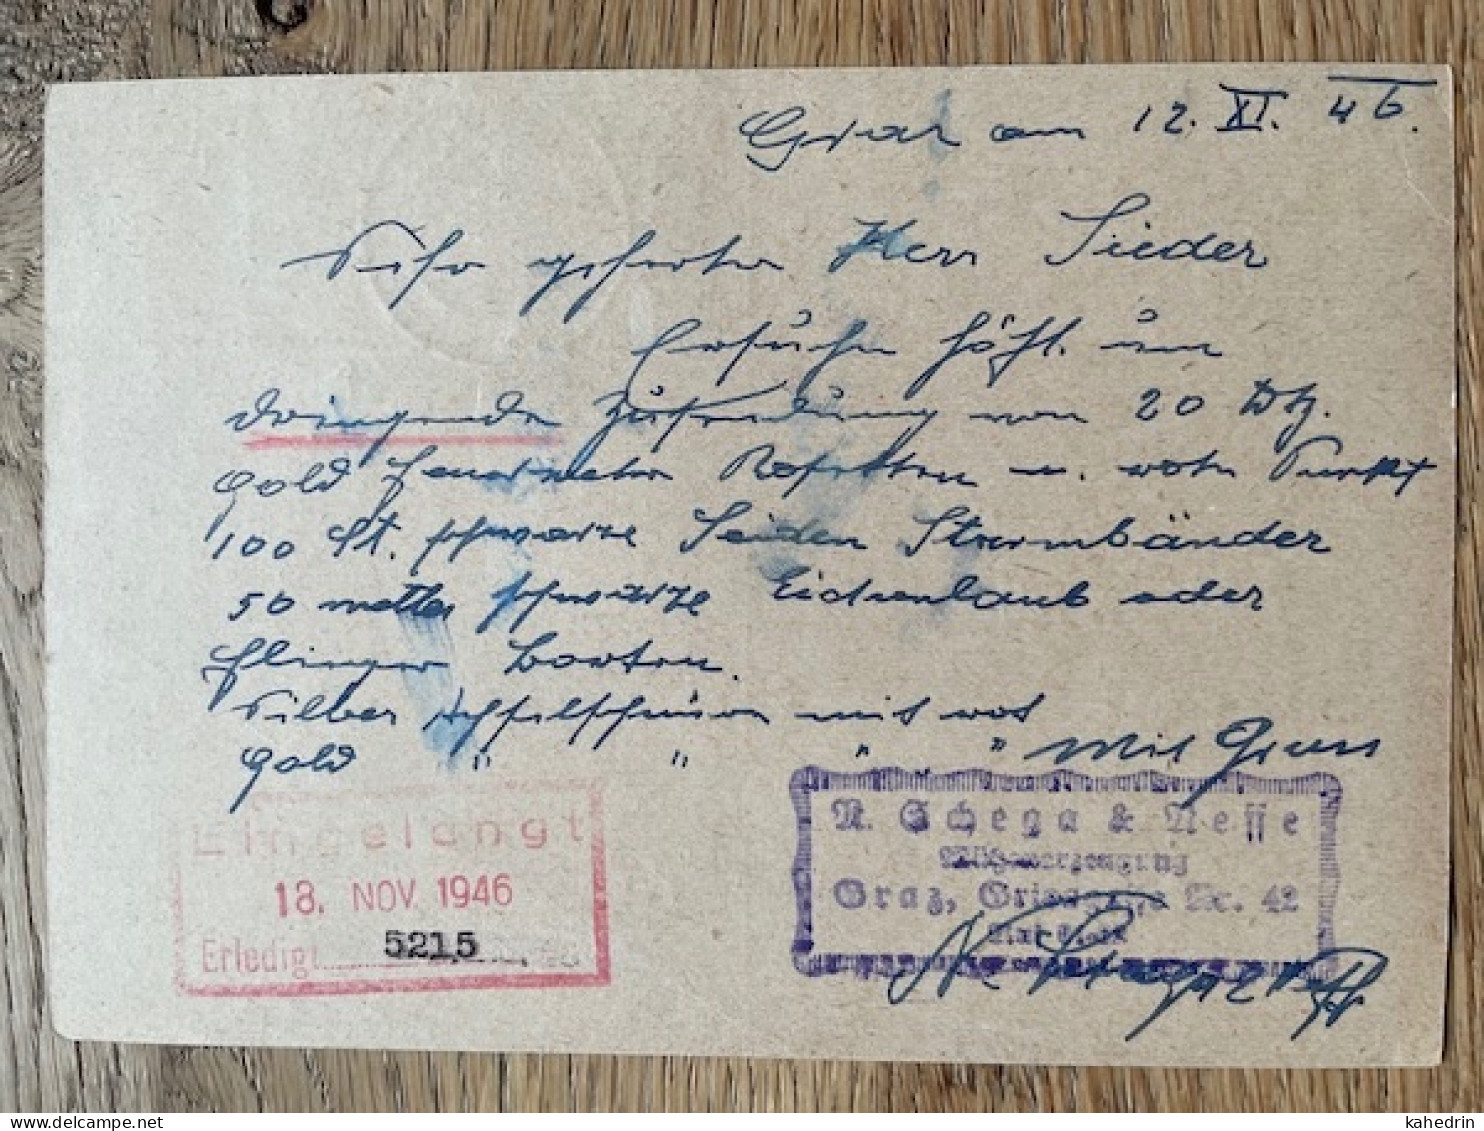 Graz am 12. XI. 46.
Sehr geehrter Herr Sieder
Ersuche höfl. um
dringende Zusendung von 20 Dtz.
Gold Feuerwehr Rosetten m. rotem Punkt
100 St. schwarze Seiden Sturmbänder
50 metter schwarze Eichenlaub oder
Flinger Borten.
Silber Achselschnüre mit rot
Gold " " " " Mit Gruss
Eingelangt
18. NOV. 1946
Erledigt 5215
N. Schega & Neffe
Mützenerzeugung
Graz, Griesgasse Nr. 42
N. Schega & Neffe
kahedrin